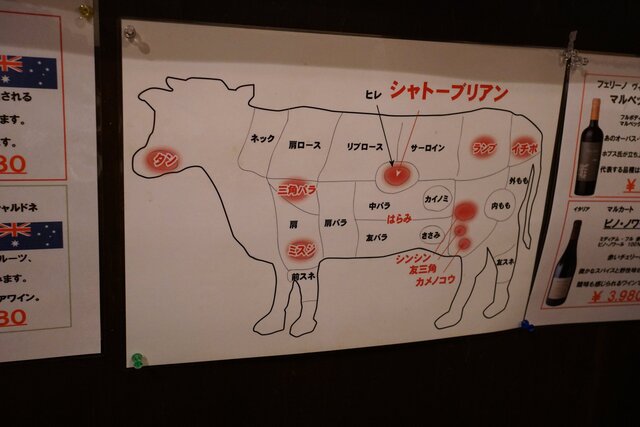 される
ます。
ます。
80
シャルドネ
ルーツ、
います。
アワイン。
80
ヒレ
シャトーブリアン
ネック
肩ロース
リブロース
サーロイン
ランプ
イチボ
タン
三角バラ
中バラ
はらみ
カイノミ
外もも
内もも
肩
肩バラ
友バラ
ささみ
ミスジ
前スネ
シンシン
友三角
カメノコウ
友スネ
フェリーノ ヴィ
マルベッ
フルボディ
マルベック
あのオーパス・
ホブス氏が立ち
代表する品種は
¥
イタリア
マルカート
ピノ・ノワ
ミディアム・フル
ピノ・ノワール 100%
赤いチェリー
かなスパイスと野性味
酸味も感じられるワインで
¥ 3,980